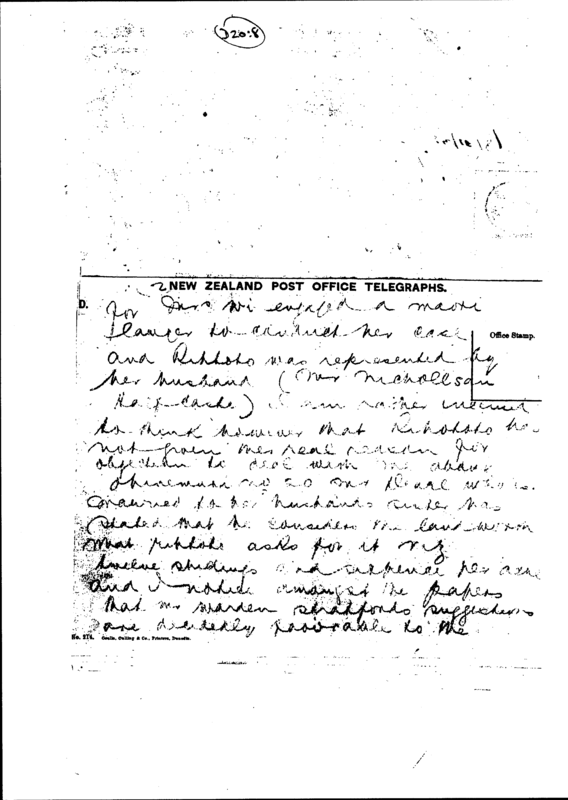 320:8
2 NEW ZEALAND POST OFFICE TELEGRAPHS.
D.
Office Stamp.
for Mrs Wi engaged a maori
to conduct her case
and Rihitoto was represented by
her husband (Mr Nichollson
Half-caste) I am rather inclined
to think however that Rihitoto has
not given her real reason for
objection to deal with the above
Ohinemuri no 20 Mr who is
married to her husbands sister has
stated that he considers the land worth
what Rihitoto asks for it viz
twelve shillings and sixpence per acre
and I notice amongst the papers
that Mr Warden Stratfords suggestions
are decidedly favorable to the
No. 274.
Coulls, Culling & Co., Printers, Dunedin.